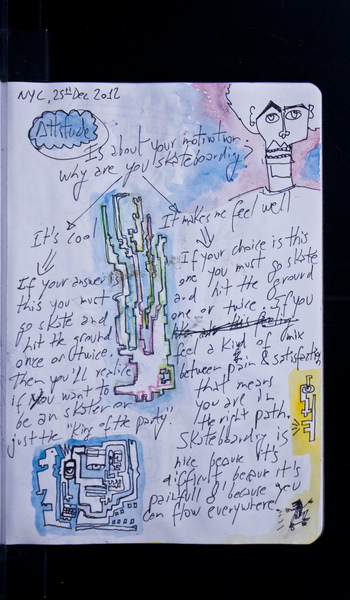 NYC, 25th Dec 2012
Attitude
Is about your motivation,
why are you skateboarding?
It's cool
It makes me feel well
If your answer is
this you must
go skate and
hit the ground
once or twice.
Then you'll realize
if you want to
be an skater or
just the "King of the party".
If your choice is this
one you must go skate
and hit the ground
one or twice. If you
feel a kind of mix
between pain & satisfaction
that means
you are in
the right path.
Skateboarding is
nice because it's
difficult, because it's
painfull & because you
can flow everywhere!